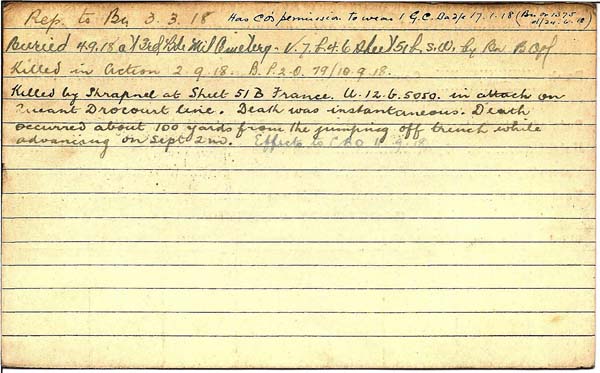 Rep. to Bn 3.3.18 Has CO's permission to wear 1 G.C. Badge 17.1.18 (Bn. or 1375
d/24.6.18)
Buried 4.9.18 at 3rd Bde Mil Cemetery - V.7.b.4.6 Sheet 51b S.W. by Bn B Off
Killed in Action 2.9.18. B.P.2.O. 79/10.9.18.
Killed by Shrapnel at Sheet 51 B France. U.12.b.5050. in attack on
Queant Drocourt line. Death was instantaneous. Death
occurred about 100 yards from the jumping off trench while
advancing on Sept 2nd. Effects to 9.18